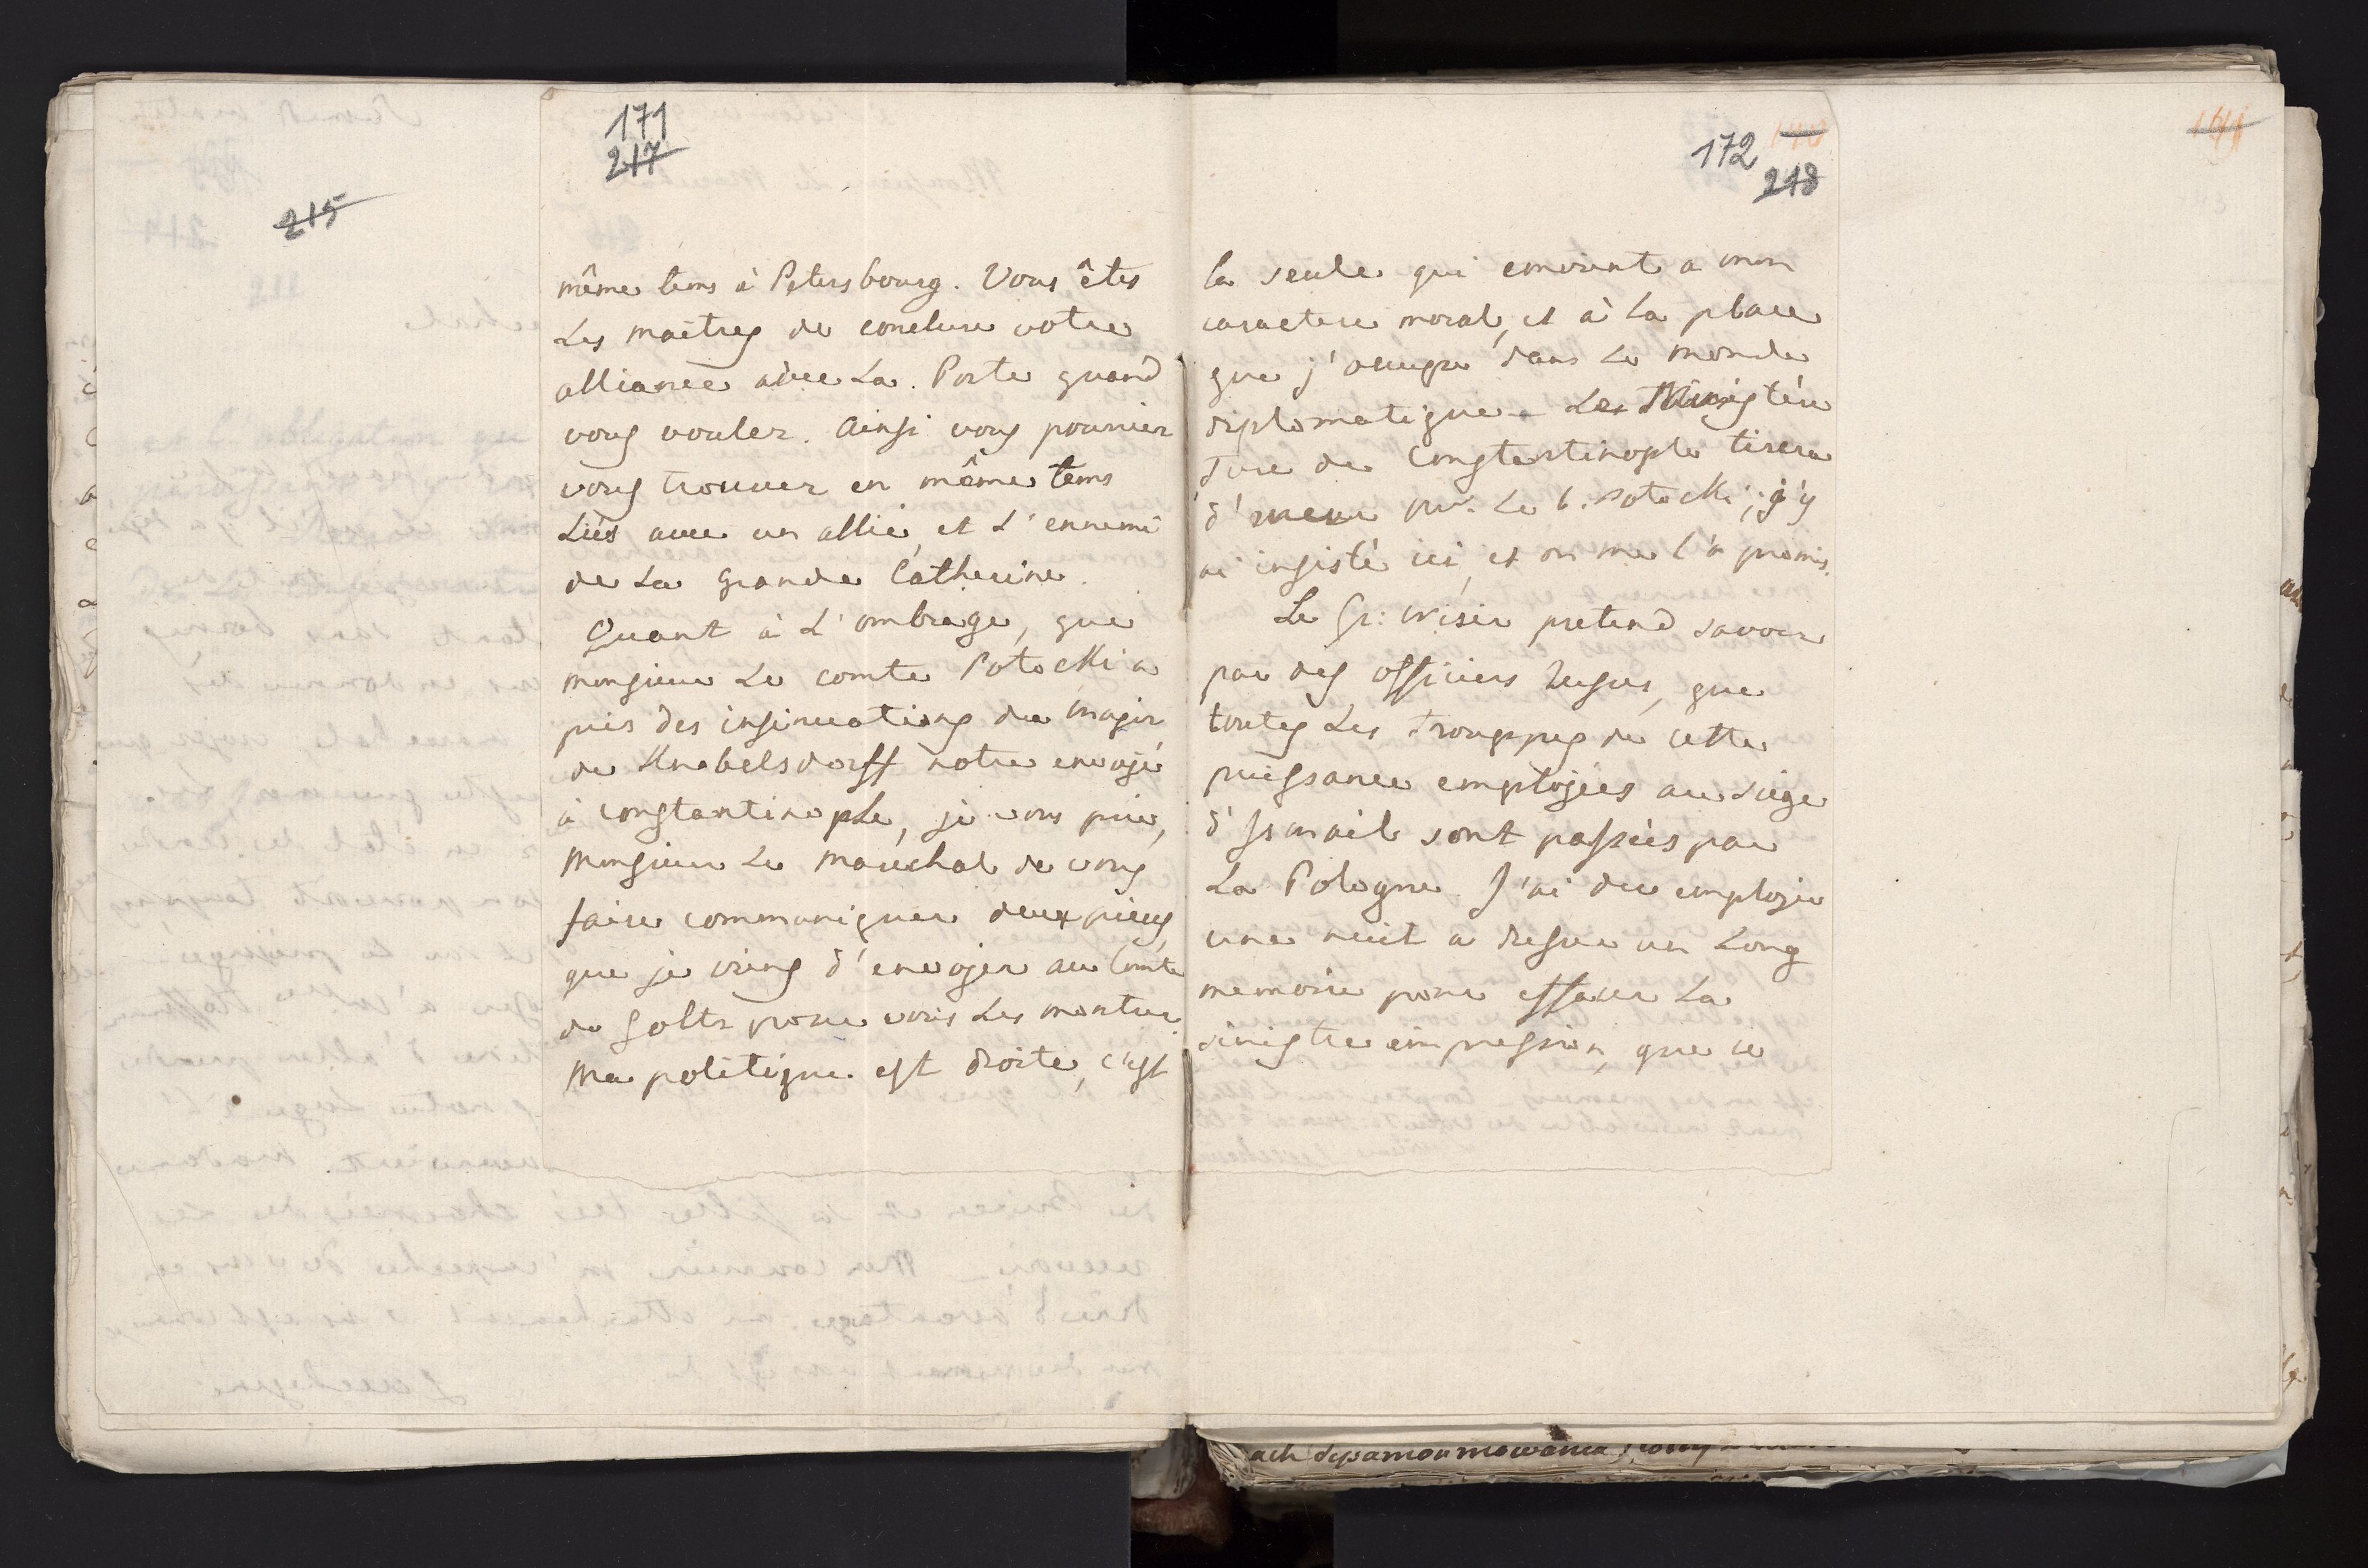 171
217
215
même tems à Petersbourg. Vous êtes
Les maitres de conclure votre
alliance avec La Porte quand
vous voulez. Ainsi vous pourriez
vous trouver en même tems
Liés avec un allié, et L'ennemi
de La grande Catherine.
Quant à L'ombrage, que
monsieur Le comte Potocki a
pris des insinuations du major
de Knobelsdorff notre envojé
à constantinople, je vous prie,
Monsieur Le marechal de vous
faire communiquer deux pieces,
que je viens d'envojer au Comte
de Goltz pour vous Les montrer.
Ma politique est droite, c'est
172
218
la seule qui convient a mon
caractere moral, et à la place
que j'occupe dans Le monde
diplomatique. Le Ministère
Turc de Constantinople tirera
d' Mr. Le C. Potocki; j'y
ai insisté ici, et on me l'a promis.
Le Gr: Wisir pretend savoir
par des officiers Russes, que
toutes Les Trouppes de cette
puissance emploijées au siège
d'Ismail sont passées par
La Pologne. J'ai du emploijer
une nuit a dresser un Long
memoire pour effacer La
sinistre impression, que ce